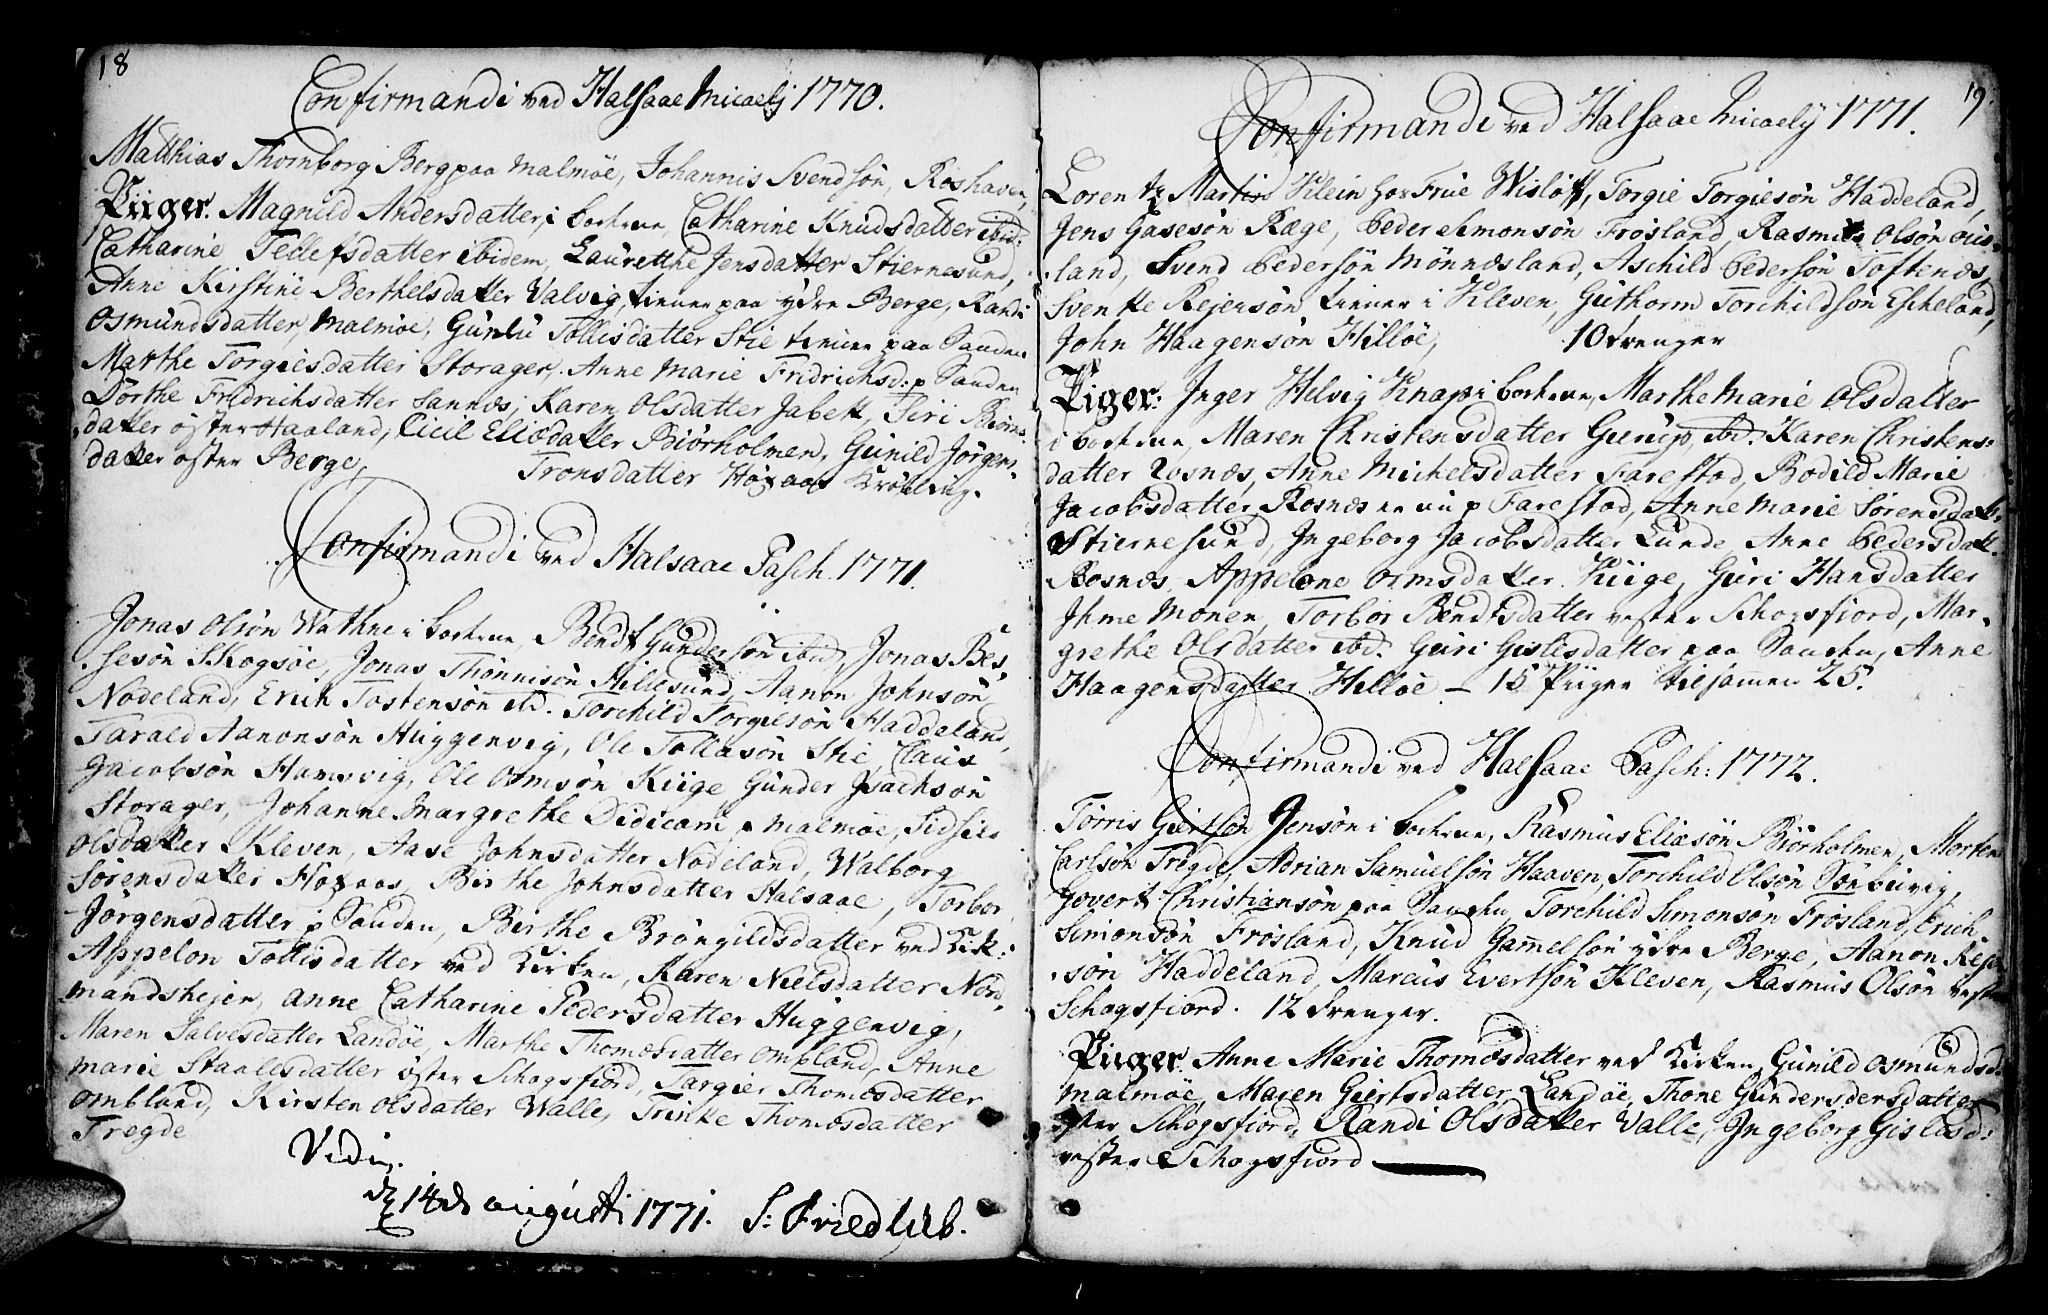 18
Confirmandi ved Halsaae Micaelj 1770.
Matthias Thornborg Berg paa Malmøe, Johannis Svendsøn, Roshaven,
Piiger. Magnild Andersdatter, i Catharine Knudsdatter ibid:
Catharine Tellefsdatter ibidem, Laurethe Jensdatter Stiernesund,
Anne Kirstine Berthelsdatter Valvig, tiener paa ydre Berge, Randi
Osmundsdatter, Malmøe, Gunlu Tollisdatter Stie tiener paa Sanden
Marthe Torgiesdatter Storager, Anne Marie Fridrichsd: p Sanden
Dorthe Fridrichsdatter Sannæs, Karen Olsdatter Jabek, Siri Biørns
datter øster Haaland, Cicil Eliædatter Biörholmen, Gunild Jørgens
datter øster Berge, Tronsdatter Høyaas Krøbling.
Confirmandi ved Halsaae Pasch. 1771.
Jonas Olsøn Wathne i Bendt Gundersøn ibid, Jonas Bes,
sesøn Skogsøe, Jonas Thønnisøn Hillesund, Aanon Johnsøn
Nodeland, Erich Tostensøn ibd. Torchild Torgiesøn Haddeland,
Tarald Aanonsøn Huggenvig, Ole Tollasøn Stie, Claus
Jacobsøn Hamsvig, Ole Ormsøn Kiige Gunder Isachsøn
Storager, Johanne Margrethe Didicam p Malmøe, Sidsel
Olsdatter Kleven, Aase Johnsdatter Nodeland, Walborg
Sørensdatter Høyaas, Birthe Johnsdatter Halsaae, Torbor
Jørgensdatter p Sanden, Birthe Brøngildsdatter ved Kirk:
Appelon Tollisdatter ved Kirken, Karen Nielsdatter Nord,
mandshejen, Anne Catharine Pedersdatter Huggenvig,
Maren Salvesdatter Landøe, Marthe Thomæsdatter Ombland, Anne
Marie Staalesdatter øster Schogsfiord, Targier Thomæsdatter
Ombland, Kirsten Olsdatter Walle, Trinke Thomæsdatter
Tregde
Vidi.
d 14de Augusti 1771. S: Friedlieb.
19.
Confirmandi ved Halsaae Micaelij 1771.
Lorentz Martin Klein hos Frue Wisløff, Torgie Torgiesøn Haddeland,
Jens Gasesøn Ræge, Peder Simonsøn Frøsland, Rasmus Olsøn Ous-
land, Svend Pedersøn Mønnæsland, Aschild Pedersøn Toftenæs,
Svenke Rejersøn tiener i Kleven, Guthorm Torchildsøn Escheland,
John Haagensøn Hilløe, 10 Drenger
Piger: Inger Helvig Knap i Marthe Marie Olsdatter
i Maren Christensdatter Gierup, ibd. Karen Christens:
datter Rosnæs, Anne Michelsdatter Farestad, Bodild Marie
Jacobsdatter Rosnæs nu p Farestad, Anne Marie Sørensdatt:
Stiernesund, Ingeborg Jacobsdatter Lunde, Anne Pedersdatt.
Rosnæs, Appelone Ormsdatter Kiige, Guri Hansdatter
Ihme Monen, Torbor Bendtsdatter vester Schogsfiord, Mar-
grethe Olsdatter ibd. Guri Gislesdatter paa Sanden, Anne
Haagensdatter Hilløe – 15 Piiger tilsamen 25.
Confirmandi ved Halsaae Pasch: 1772.
Torris Giertsøn Jensøn i Rasmus Eliæsøn Biörholmen, Morten
Carlsøn Tregde, Adrian Samuelsøn Haaven, Torchild Olsøn
Govert Christiansøn paa Sanden, Torchild Simonsøn Frøsland, Erich
Simonsøn Frøsland, Knud Gamelsøn ydre Berge, Aanon Rejer
søn Haddeland, Marcus Evertsøn Kleven, Rasmus Olsøn vester
Schogsfiord. 12 Drenger.
Piiger. Anne Marie Thomæsdatter ved Kirken, Gunild Osmundsd
Malmøe, Maren Giertsdatter Landøe, Thone Gundersdersdatter
øster Schogsfiord, Randi Olsdatter Valle, Ingeborg Gislesd:
vester Schogsfiord